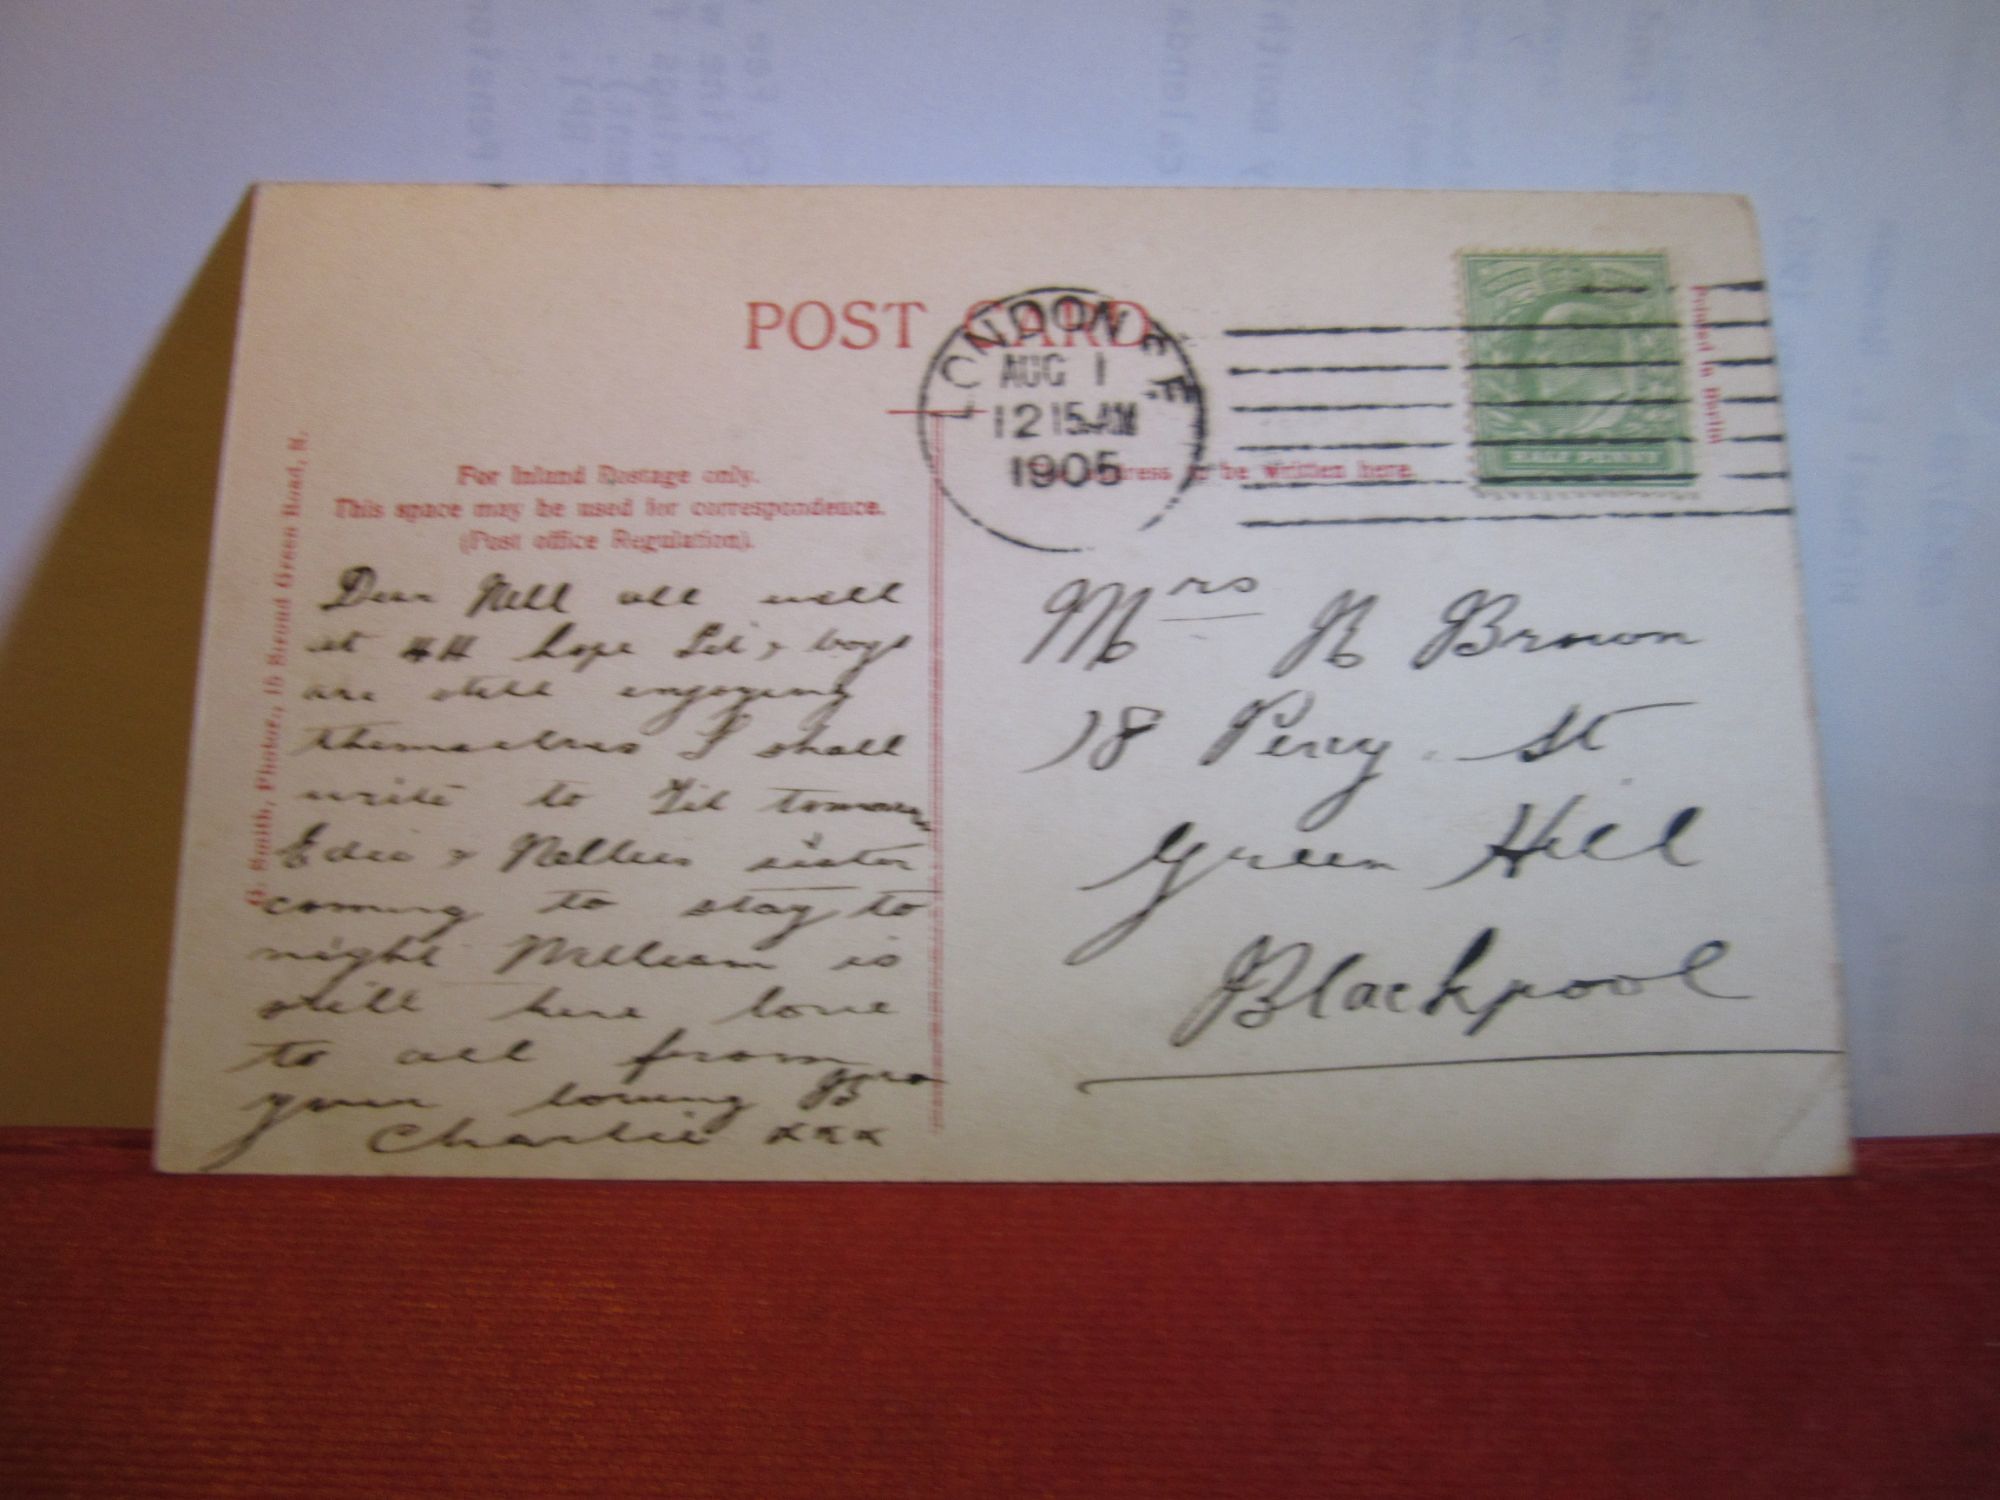 POST CARD
LONDON. E.
AUG 1
12 15 AM
1905
HALF PENNY
Printed in Berlin
For Inland Postage only.
This space may be used for correspondence.
(Post office Regulation).
address to be written here.
Smith, Photo., 15 Broad Green Road, N.
Dear Nell all well
at 44 hope Lil & boys
are still enjoying
themselves I shall
write to Lil tomorrow
Edie & Nellies sister
coming to stay to
night William is
still here love
to all from
your loving Bro
Charlie xxx
Mrs Brown
18 Percy St
Green Hill
Blackpool